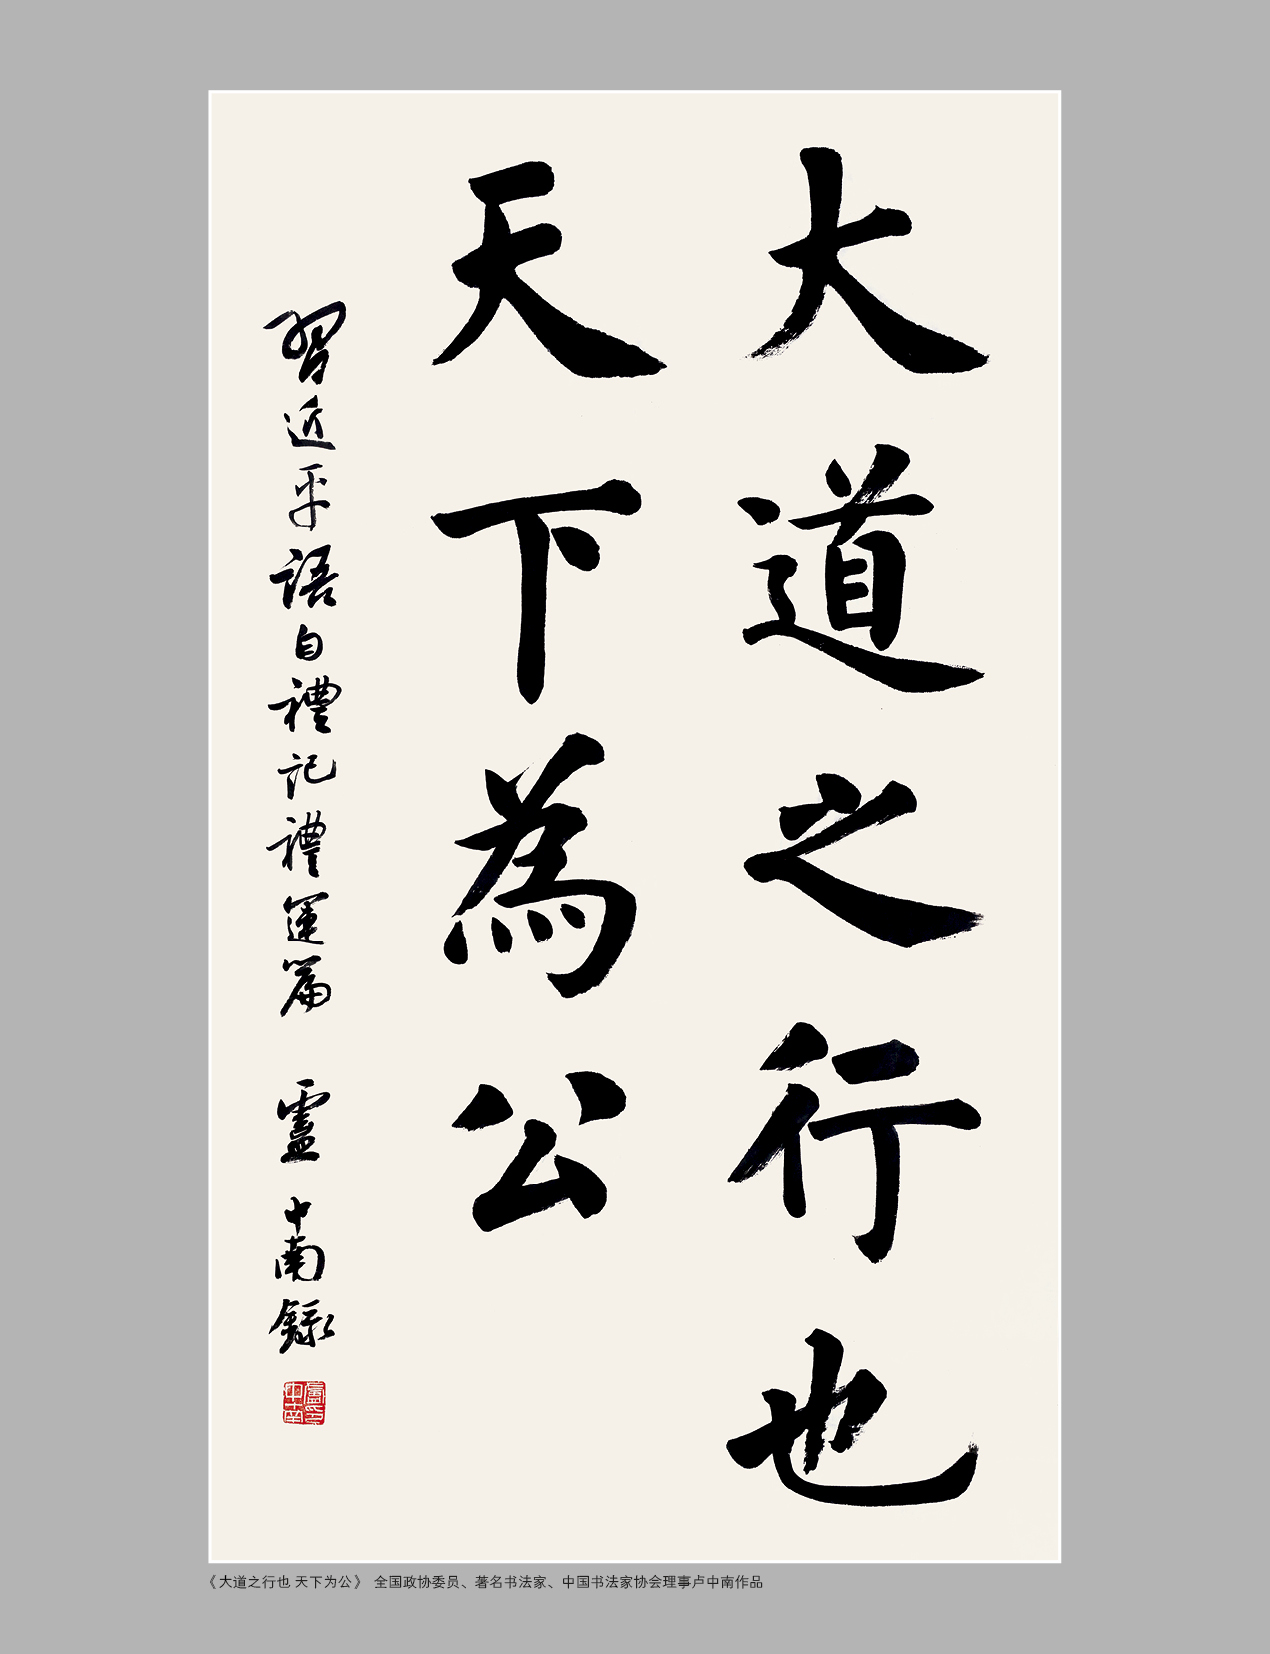 大道之行也
天下為公
習近平語自禮記禮運篇 盧中南録
《大道之行也 天下为公》 全国政协委员、著名书法家、中国书法家协会理事卢中南作品